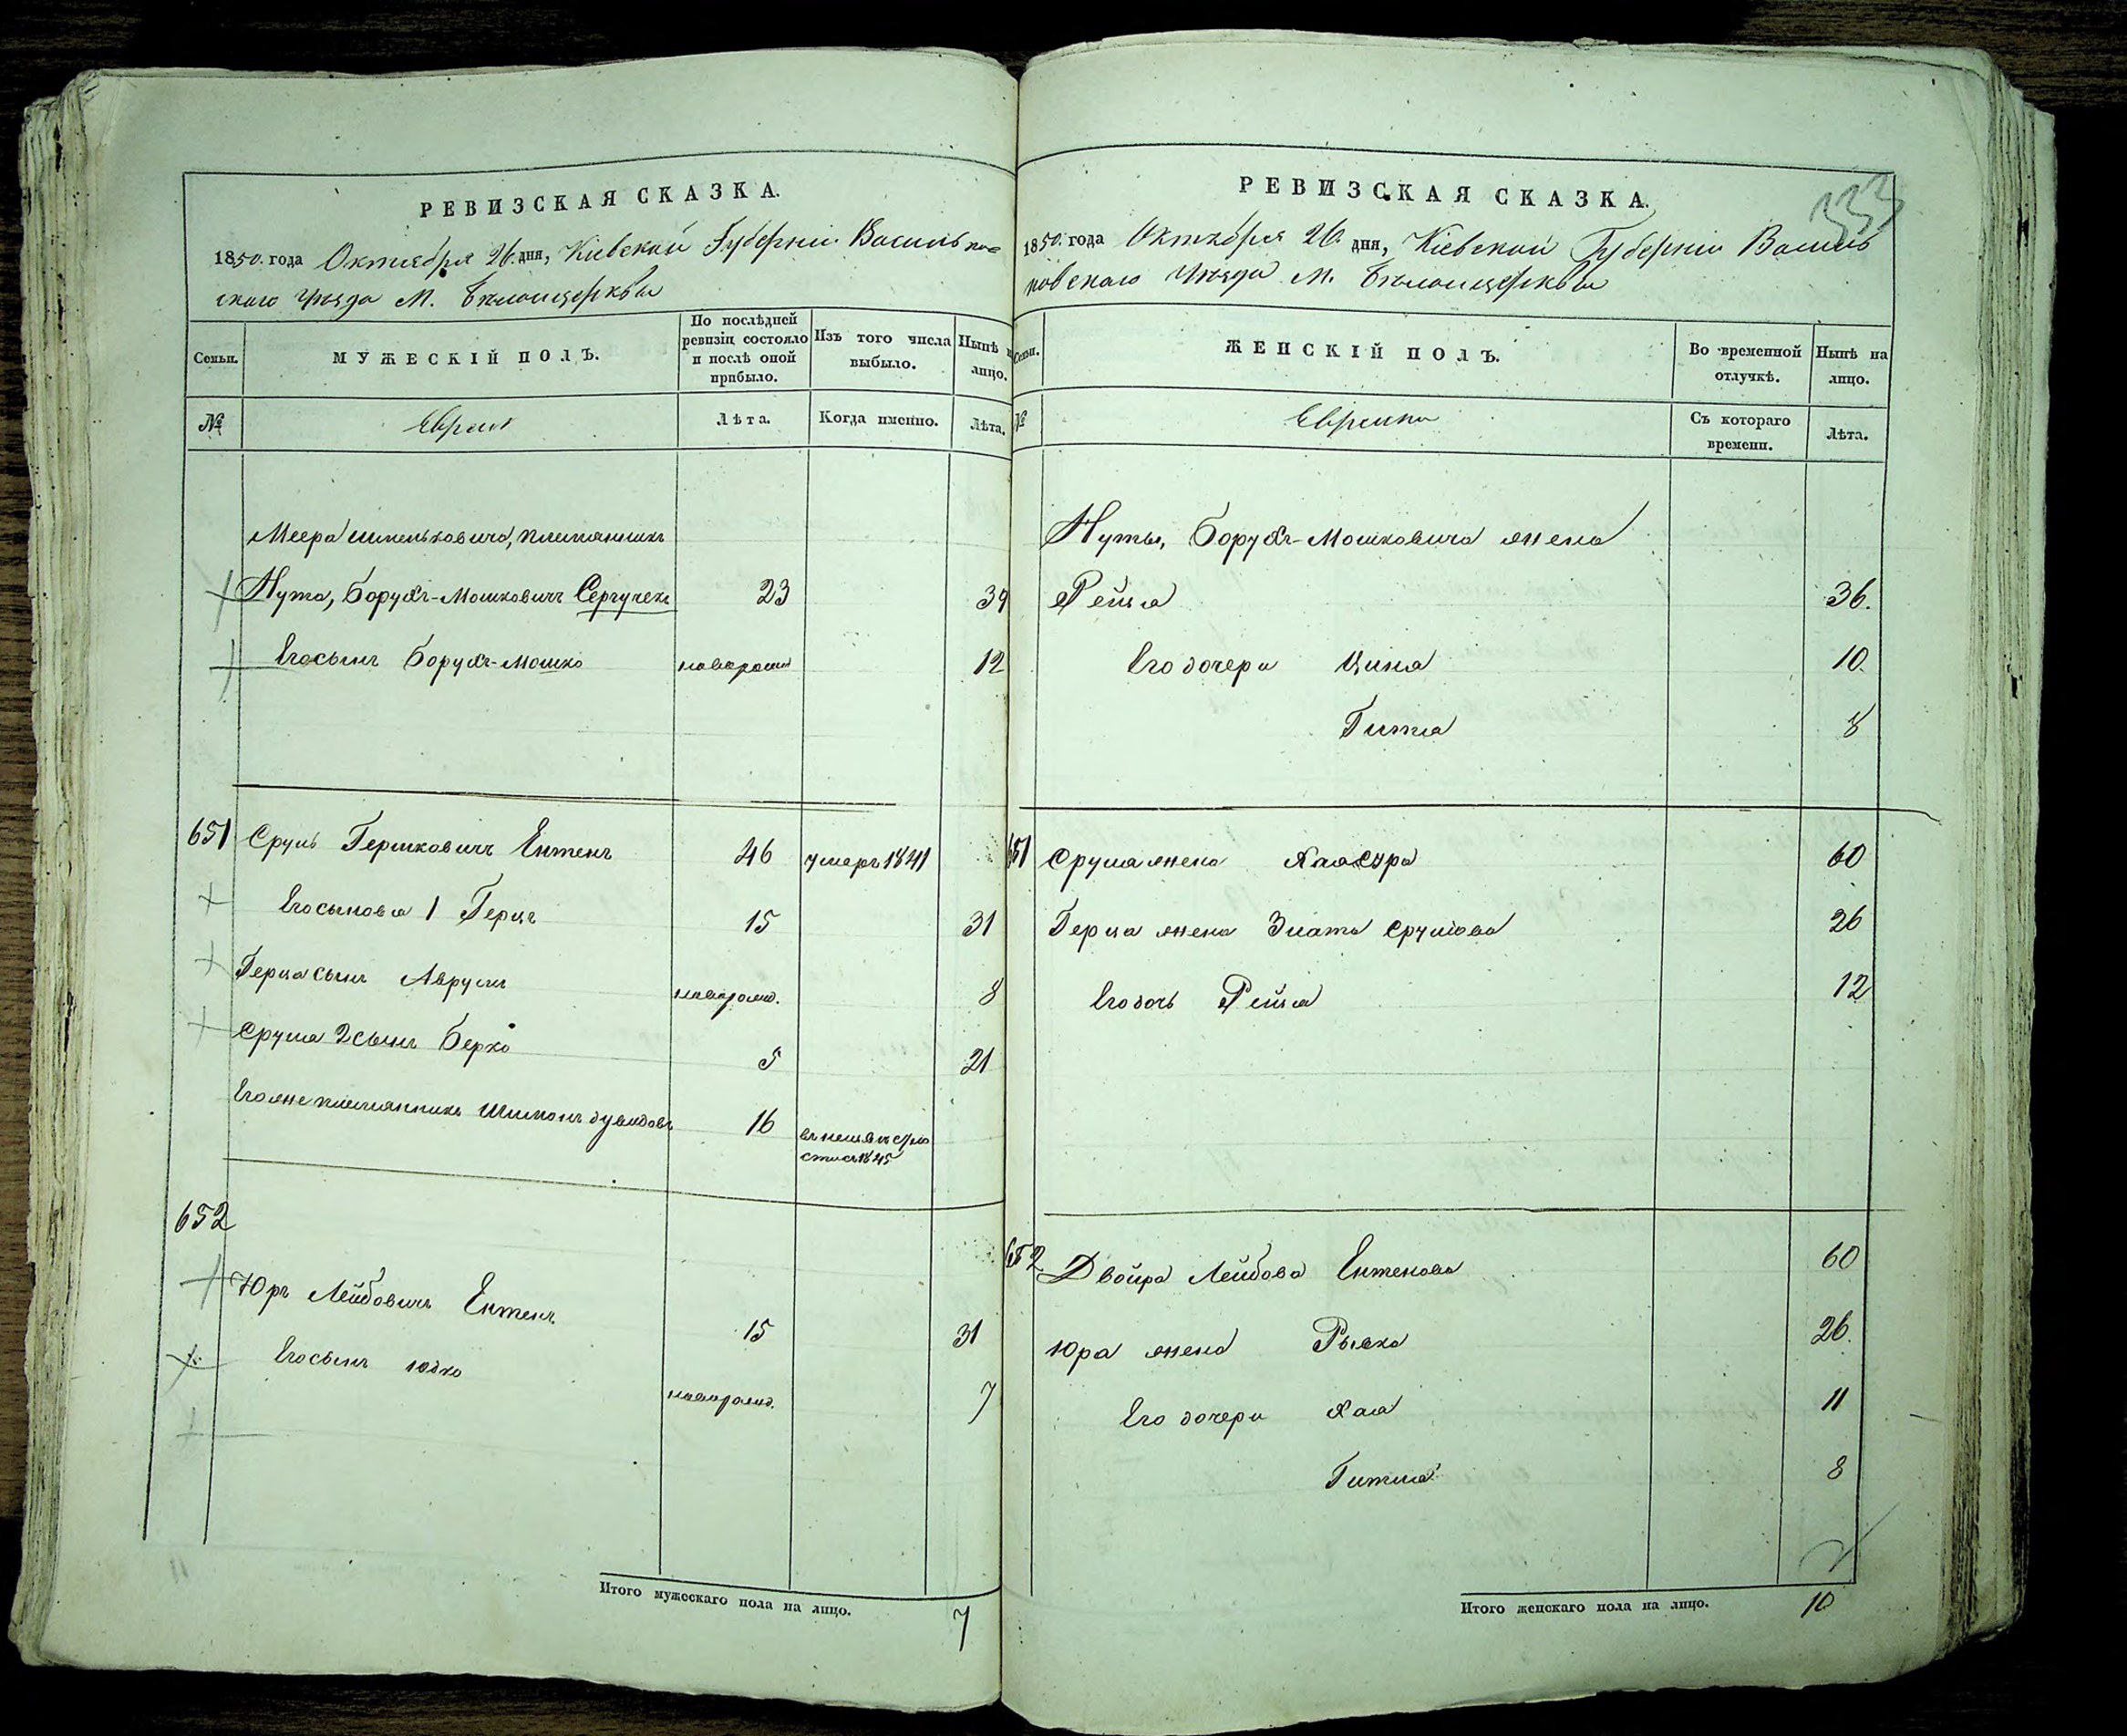 РЕВИЗСКАЯ СКАЗКА.
1850 года Октября 26 дня, Кіевской Губерніи Васильков-
скаго Уѣзда М. Бѣлоцеркви
Семьи.
МУЖЕСКІЙ ПОЛЪ.
По послѣдней ревизіи состояло и послѣ оной прибыло.
Изъ того числа выбыло.
Нынѣ на лицо.
№
Евреи
Лѣта.
Когда именно.
Лѣта.
Меера племянникъ
Нута, Борухъ-Мошковичъ Сергучекъ 23 39
Его сынъ Борухъ-Мошко новорожд 12
651 Сруль Гершковичъ Ентенъ 46 умеръ 1841
Его сыновья 1 Герцъ 15 31
Герца сынъ Аврумъ новорожд. 8
Сруля 2 сынъ Берко 5 21
Его же племянникъ Шимонъ Дувидовъ 16 1845
652
Юръ Лейбовичъ Ентенъ 15 31
Его сынъ Юдко новорожд. 7
Итого мужескаго пола на лицо. 7
РЕВИЗСКАЯ СКАЗКА.
333
1850 года Октября 26 дня, Кіевской Губерніи Василь
ковскаго Уѣзда М. Бѣлоцеркви
Семьи.
ЖЕНСКІЙ ПОЛЪ.
Во временной отлучкѣ.
Нынѣ на лицо.
№
Еврейки
Съ котораго времени.
Лѣта.
Нуты, Борухъ-Мошковича жена
Рейзя 36.
Его дочери Ципя 10.
Гитля 8
651 Сруля жена Хаясура 60
Герца жена Злата Срулева 26
Его дочь Рейзя 12
652 Двойра Лейбова Ентенова 60
Юра жена Рывка 26.
Его дочери Хая 11
Гитля 8
Итого женскаго пола на лицо. 10